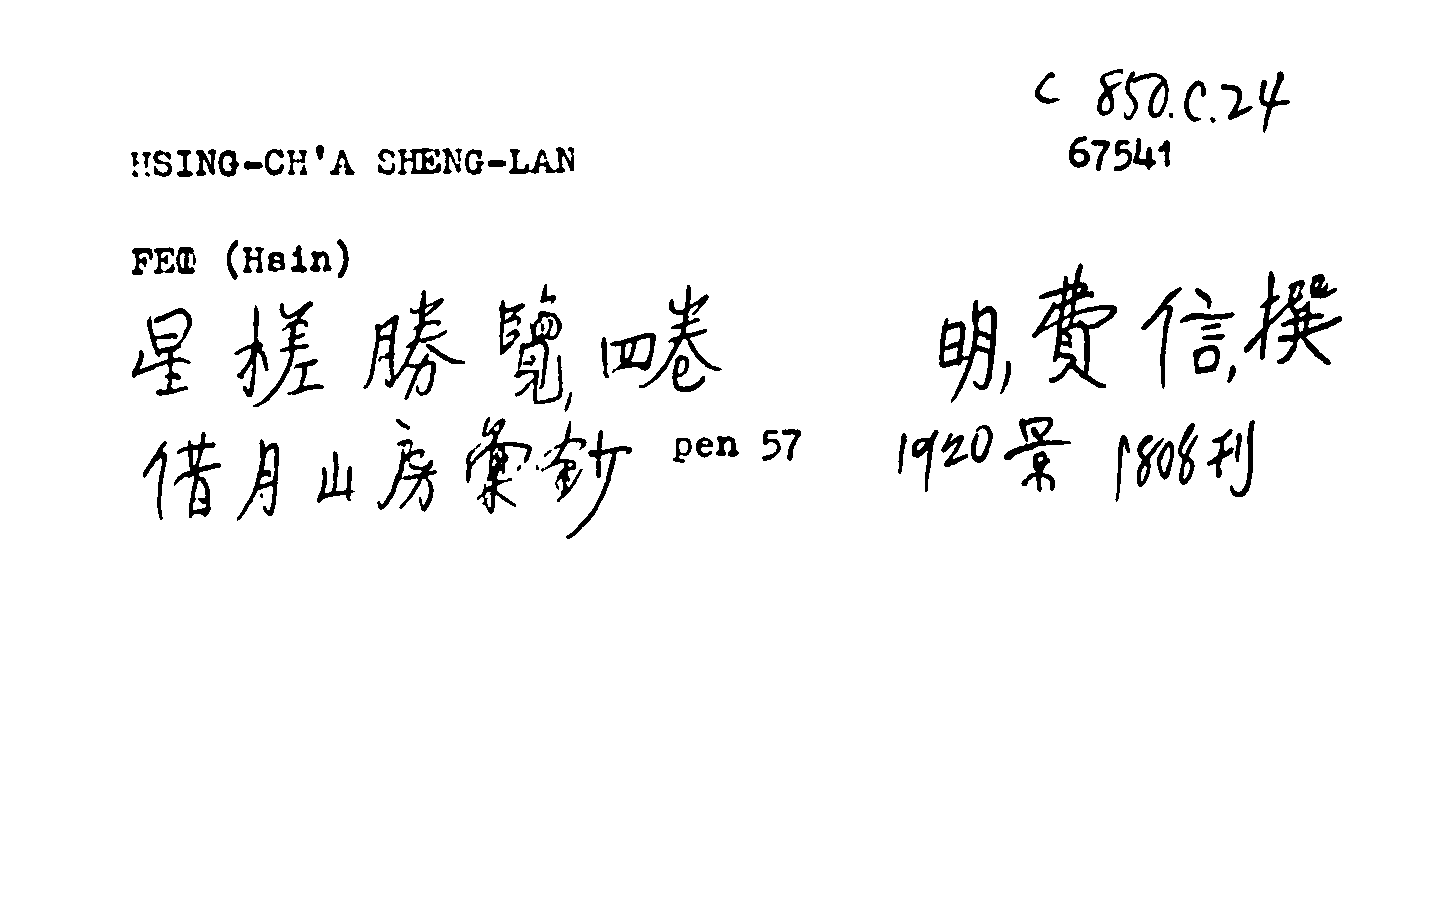 C 850.C.24
67541
HSING-CH'A SHENG-LAN
FEI (Hsin)
星槎勝覽,四卷 明,費信,撰
借月山房彙鈔 pen 57 1920景 1808刊